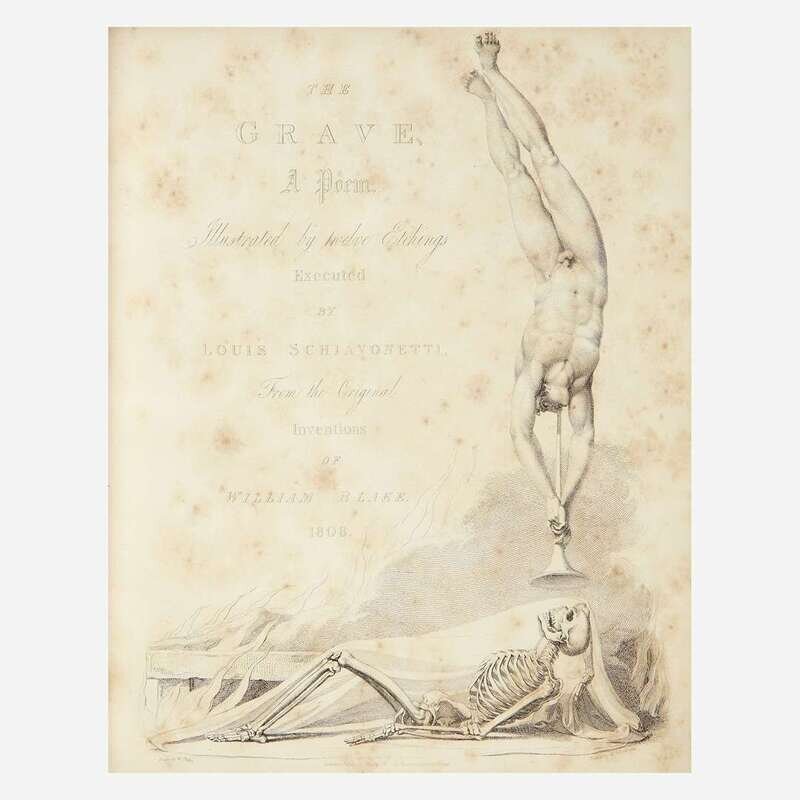 THE
GRAVE,
A Poem.
Illustrated by twelve Etchings
Executed
BY
LOUIS SCHIAVONETTI,
From the Original
Inventions
OF
WILLIAM BLAKE.
1808.